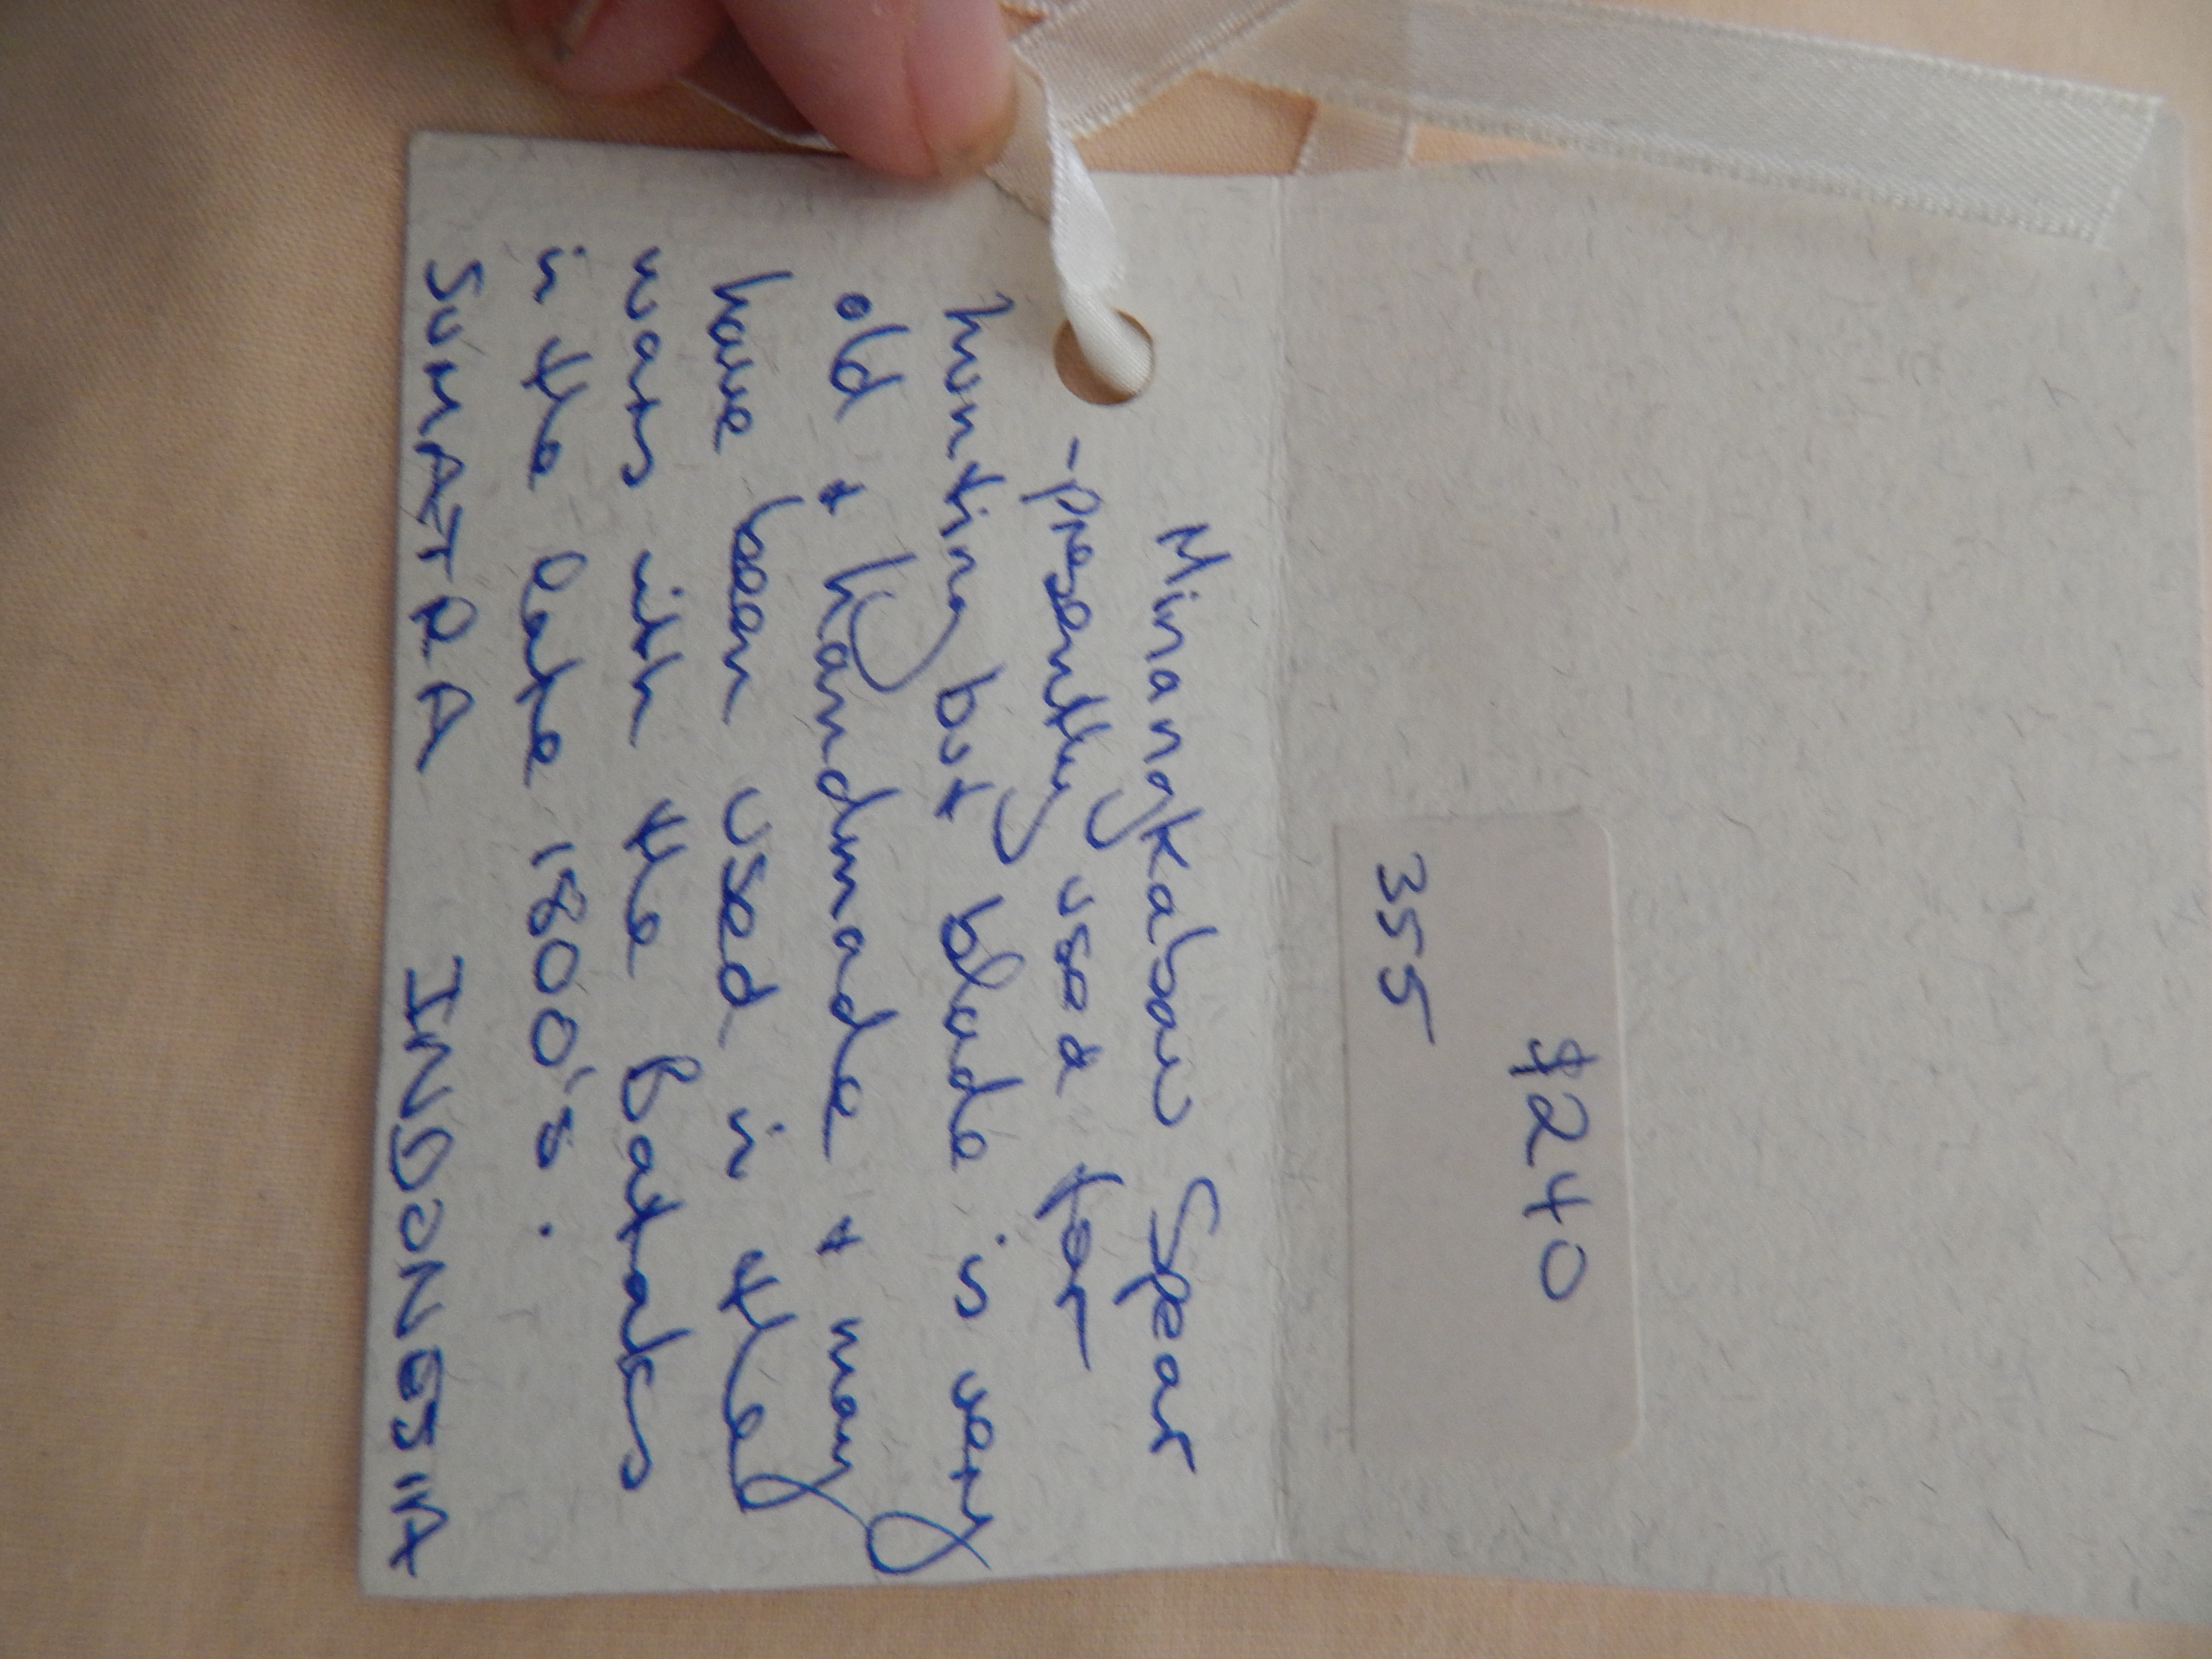 $240
355
Minangkabau Spear
-presently used for
hunting but blade is very
old + handmade + may
have been used in the
wars with the Bataks
in the late 1800's.
SUMATRA INDONESIA